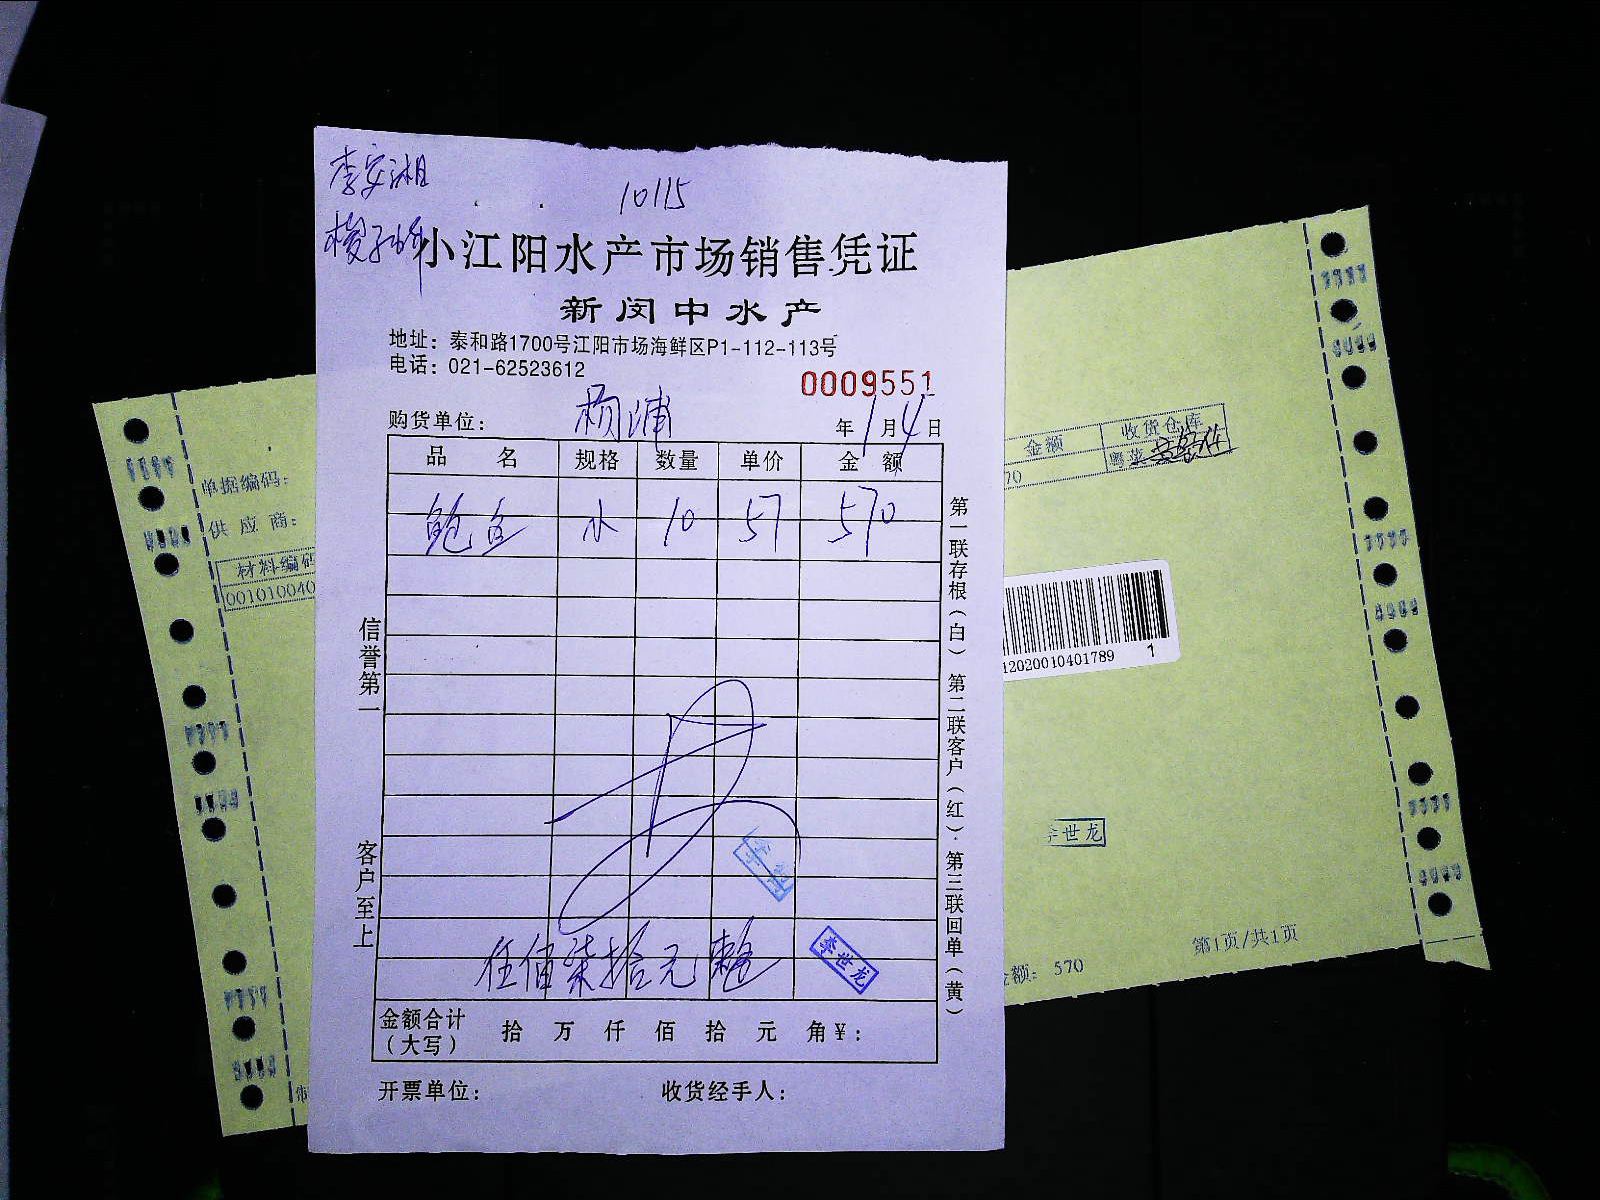 李安湘
10115
小江阳水产市场销售凭证
新闵中水产
地址：泰和路1700号江阳市场海鲜区P1-112-113号
电话：021-62523612
0009551
购货单位： 杨浦 年1月4日
品名 规格 数量 单价 金额
鲍鱼 小 10 57 570
信誉第一
客户至上
第一联存根（白）第二联客户（红）.第三联回单（黄）
伍佰柒拾元整
李世龙
金额合计（大写） 拾 万 仟 佰 拾 元 角￥：
开票单位： 收货经手人：
单据编码：
供应商：
材料编码
001010040
金额 收货仓库
70 粤菜
12020010401789 1
李世龙
第1页/共1页
金额：570